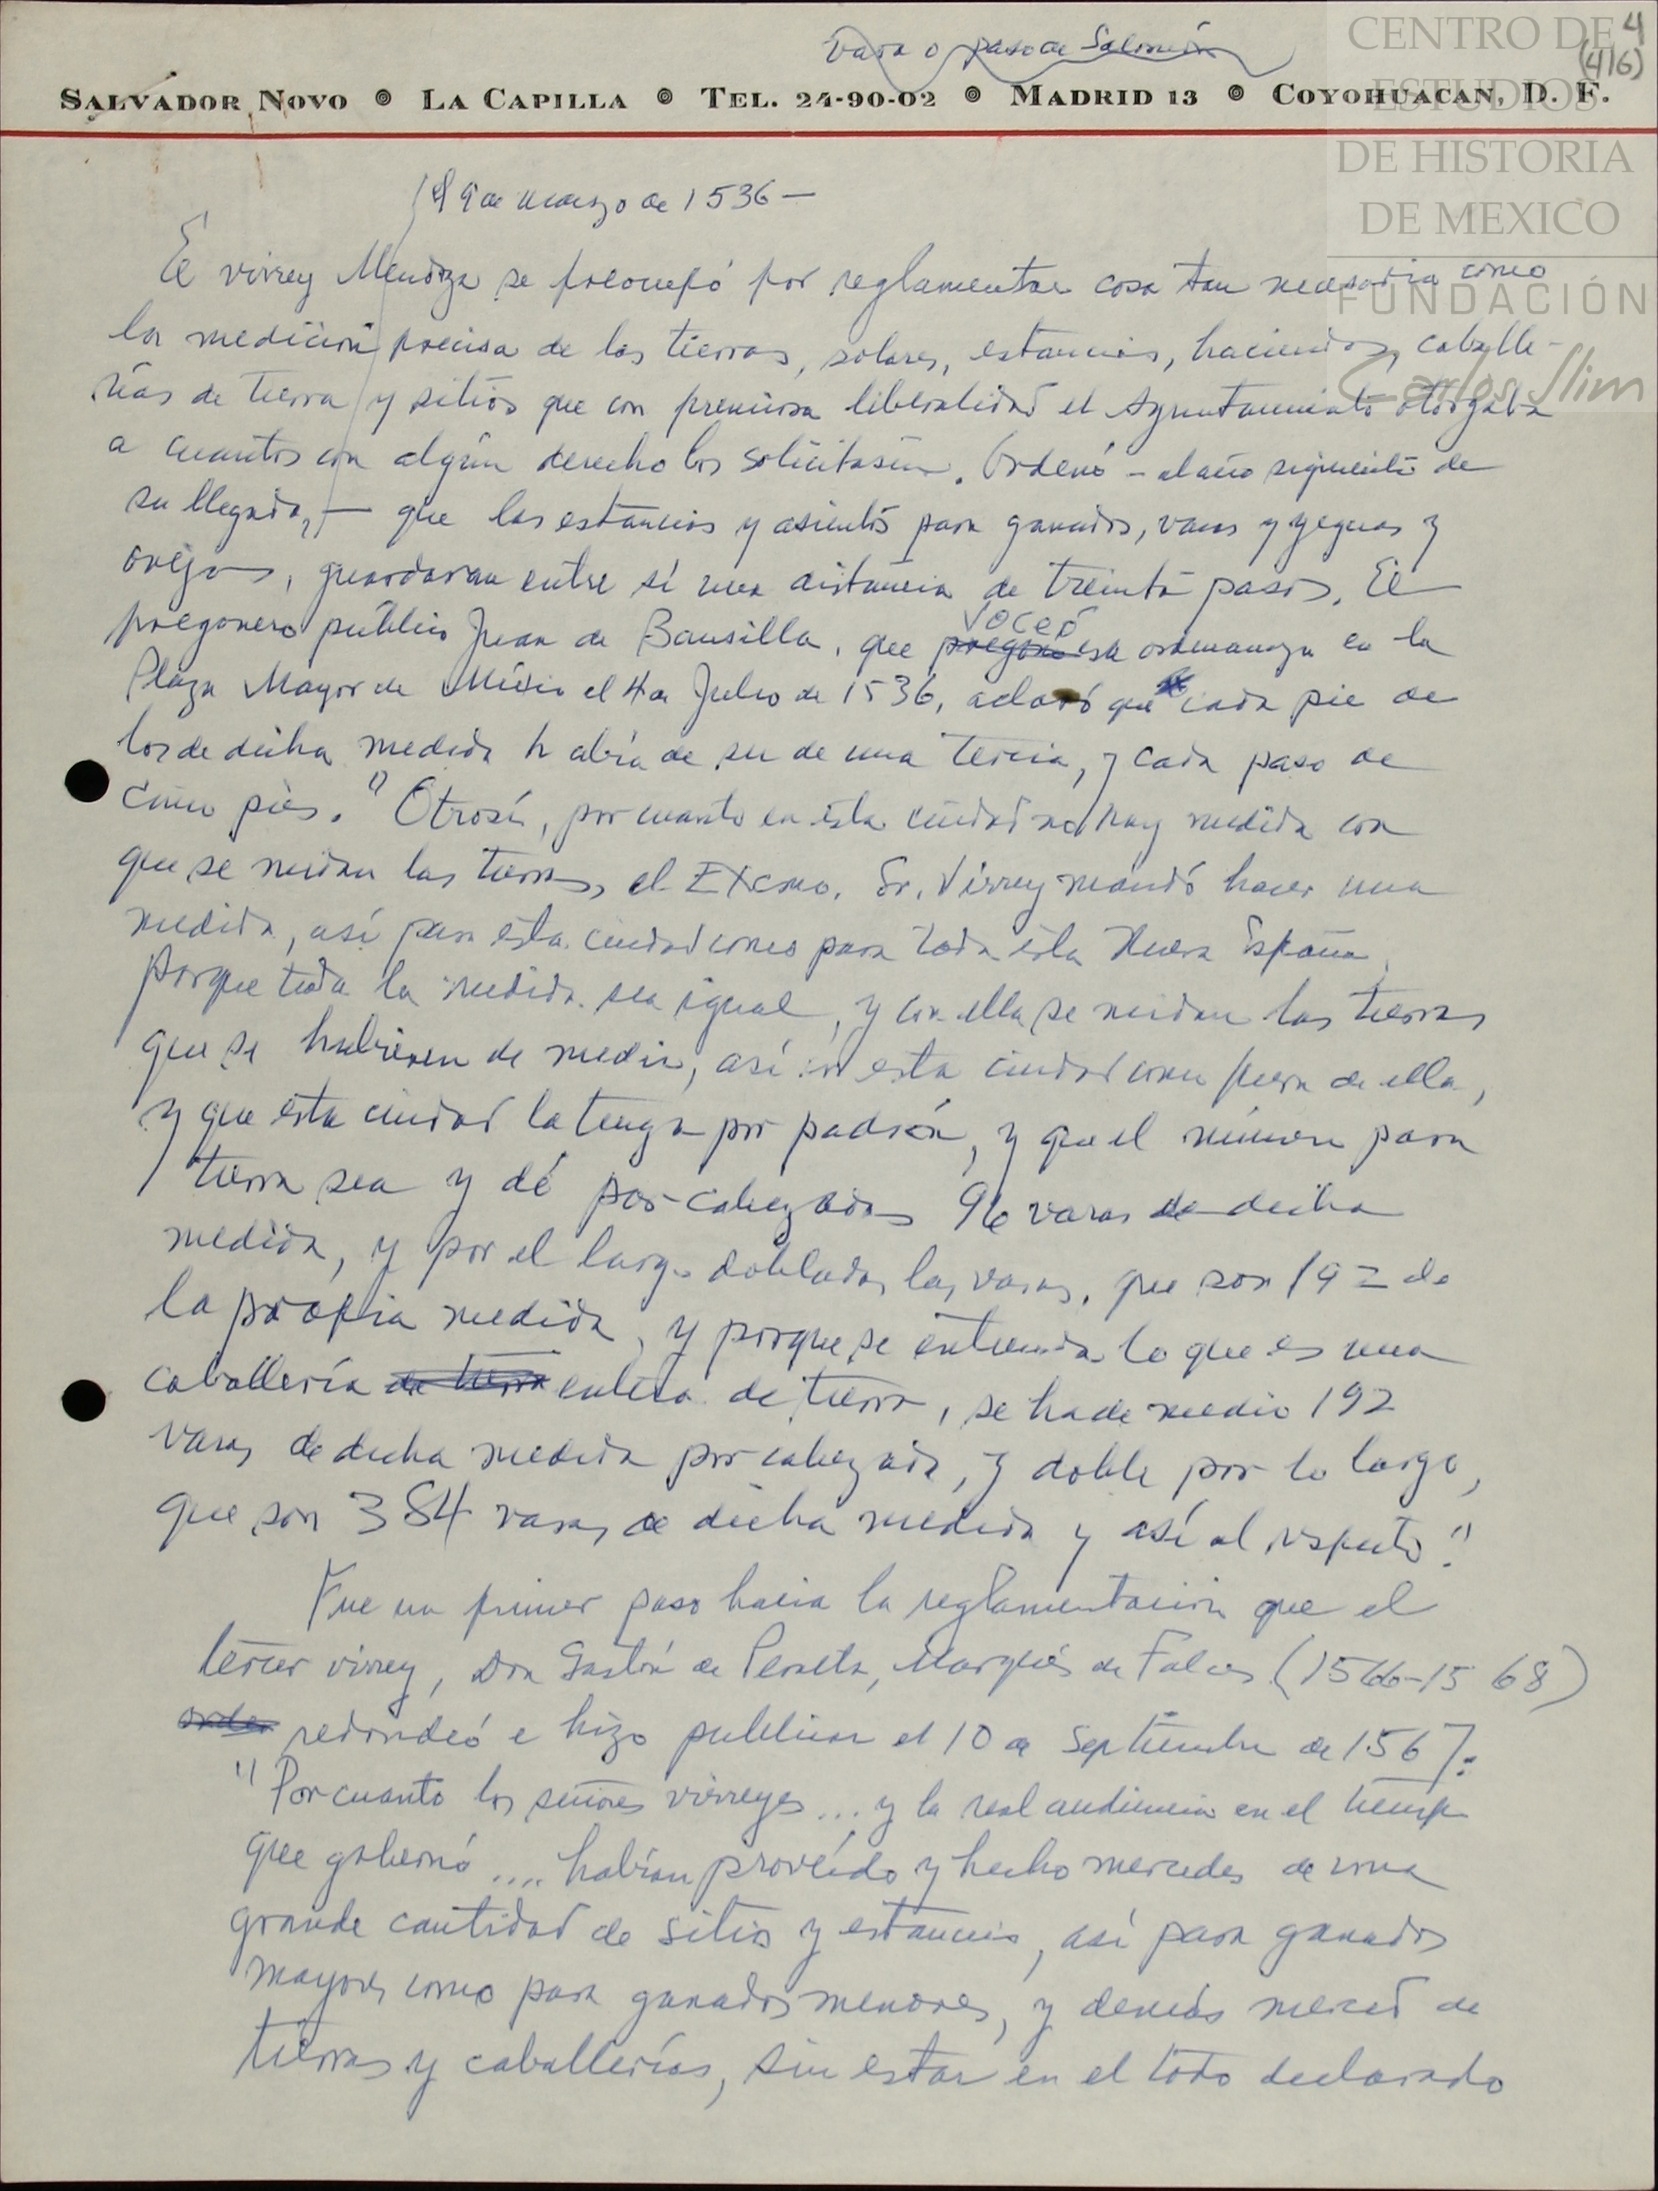 vara o paso de Salomón
4
(416)
CENTRO DE
ESTUDIOS
DE HISTORIA
DE MEXICO
FUNDACIÓN
Carlos Slim
SALVADOR NOVO ● LA CAPILLA ● TEL. 24-90-02 ● MADRID 13 ● COYOHUACAN, D. F.
9 de marzo de 1536 —
El virrey Mendoza se preocupó por reglamentar cosa tan necesaria como
la medición precisa de las tierras, solares, estancias, haciendas, caballe-
rías de tierra y sitios que con premiosa liberalidad el Ayuntamiento otorgaba
a cuantos con algún derecho los solicitasen. Ordenó - al año siguiente de
su llegada, — que las estancias y asientos para ganados, vacas y yeguas y
ovejas, guardaran entre sí una distancia de treinta pasos. El
pregonero público Juan de Bansilla, que pregonó voceó esa ordenanza en la
Plaza Mayor de México el 4 de Julio de 1536, aclaró que cada pie de
los de dicha medida había de ser de una tercia, y cada paso de
cinco pies. "Otrosí, por cuanto en esta ciudad no hay medida con
que se midan las tierras, el Excmo. Sr. Virrey mandó hacer una
medida, así para esta ciudad como para toda esta Nueva España,
porque toda la medida sea igual, y con ella se midan las tierras
que se hubieren de medir, así en esta ciudad como fuera de ella,
y que esta ciudad la tenga por padrón, y que el número para
tierra sea y dé por cabezadas 96 varas de dicha
medida, y por el largo dobladas las varas, que son 192 de
la propia medida, y porque se entienda lo que es una
caballería de tierra entera de tierra, se ha de medir 192
varas de dicha medida por cabezada, y doble por lo largo,
que son 384 varas de dicha medida y así al respecto."
Fue un primer paso hacia la reglamentación que el
tercer virrey, Don Gastón de Peralta, Marqués de Falces (1566-1568)
orden redondeó e hizo publicar el 10 de Septiembre de 1567:
"Por cuanto los señores virreyes... y la real audiencia en el tiempo
que gobernó .... habían proveído y hecho mercedes de una
grande cantidad de sitios y estancias, así para ganados
mayores como para ganados menores, y demás merced de
tierras y caballerías, sin estar en el todo declarado